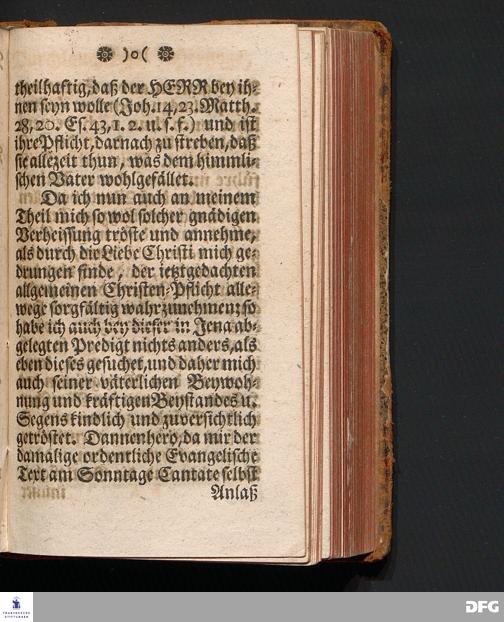 ❁ )o( ❁
theilhaftig, daß der HERR bey ih-
nen seyn wolle (Joh. 14, 23. Matth.
28, 20. Es. 43, 1. 2. u. s. f.) und ist
ihre Pflicht, darnach zu streben, daß
sie allezeit thun, was dem himmli-
schen Vater wohlgefället.
Da ich nun auch an meinem
Theil mich so wol solcher gnädigen
Verheissung tröste und annehme,
als durch die Liebe Christi mich ge-
drungen finde, der ietztgedachten
allgemeinen Christen-Pflicht alle-
wege sorgfältig wahrzunehmen; so
habe ich auch bey dieser in Jena ab-
gelegten Predigt nichts anders, als
eben dieses gesuchet, und daher mich
auch seiner väterlichen Beywoh-
nung und kräftigen Beystandes u.
Segens kindlich und zuversichtlich
getröstet. Dannenhero, da mir der
damalige ordentliche Evangelische
Text am Sonntage Cantate selbst
Anlaß
FRANCKESCHE
STIFTUNGEN
DFG